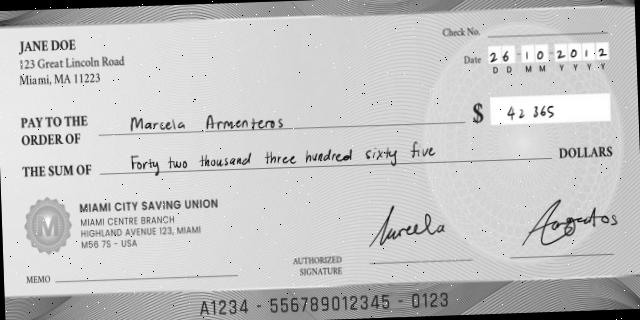 JANE DOE
123 Great Lincoln Road
Miami, MA 11223
Check No.
Date 26 10 2012
D D M M Y Y Y Y
PAY TO THE
ORDER OF Marcela Armenteros
$ 42 365
THE SUM OF Forty two thousand three hundred sixty five DOLLARS
M
MIAMI CITY SAVING UNION
MIAMI CENTRE BRANCH
HIGHLAND AVENUE 123, MIAMI
M56 7S - USA
AUTHORIZED
SIGNATURE
MEMO
A1234 - 556789012345 - 0123